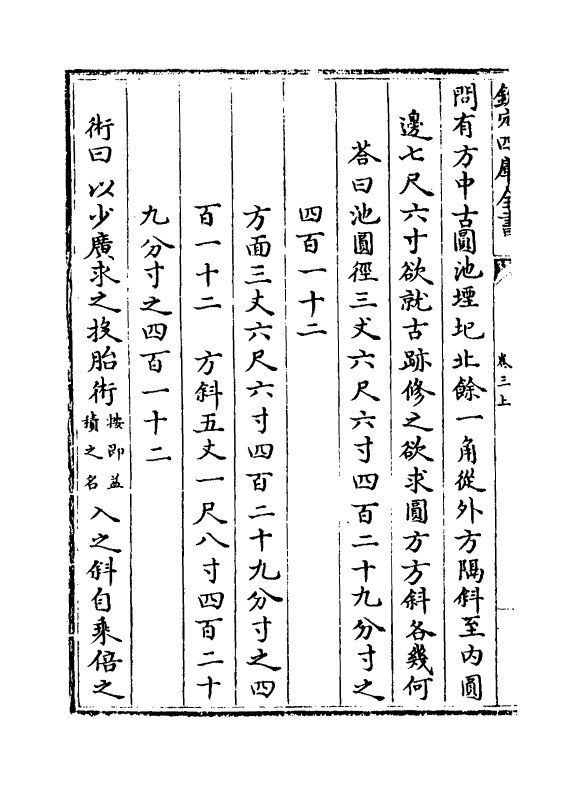 欽定四庫全書
卷三上
問有方中古圓池堙圮北餘一角從外方隅斜至内圓
邊七尺六寸欲就古跡修之欲求圓方方斜各幾何
荅曰池圓徑三丈六尺六寸四百二十九分寸之
四百一十二
方面三丈六尺六寸四百二十九分寸之四
百一十二　方斜五丈一尺八寸四百二十
九分寸之四百一十二
術曰以少廣求之投胎術按即益積之名入之斜自乘倍之